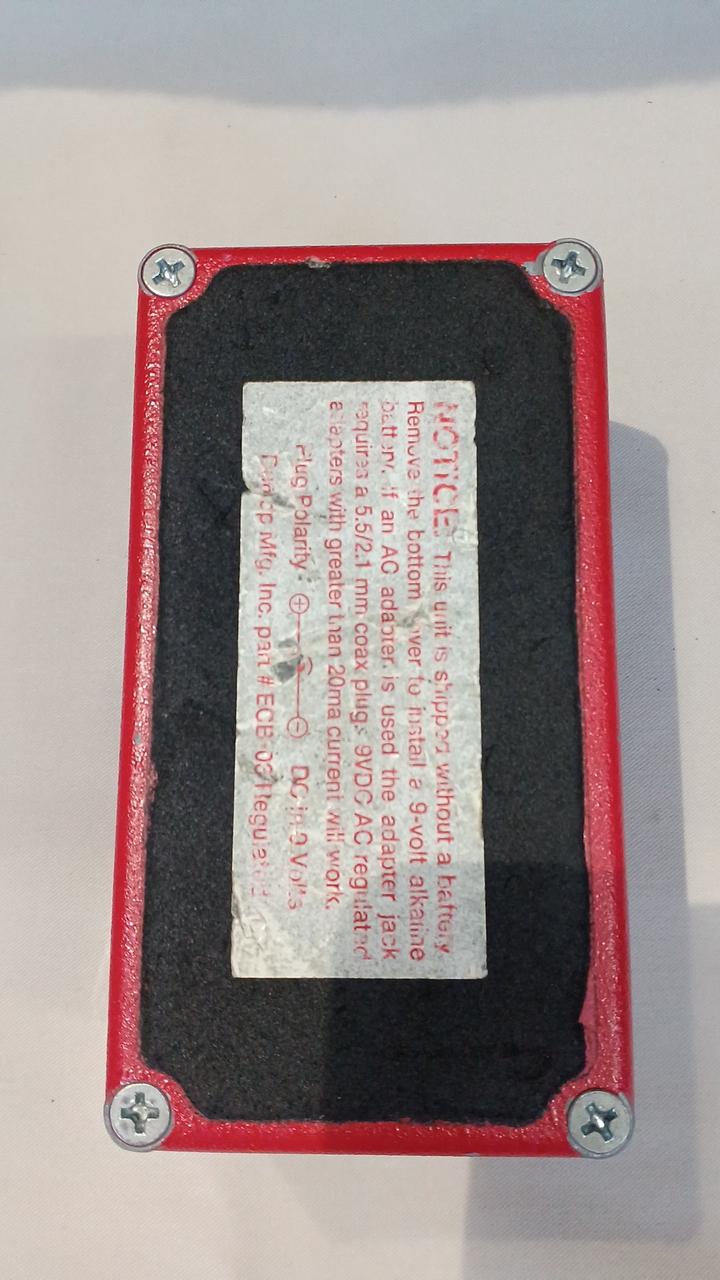 NOTICE: This unit is shipped without a battery.
Remove the bottom cover to install a 9-volt alkaline
battery. If an AC adapter is used the adapter jack
requires a 5.5/2.1 mm coax plug. 9VDC AC regulated
adapters with greater than 20ma current will work.
Plug Polarity: + - DC in 9 Volts
Dunlop Mfg. Inc. part # Regulated